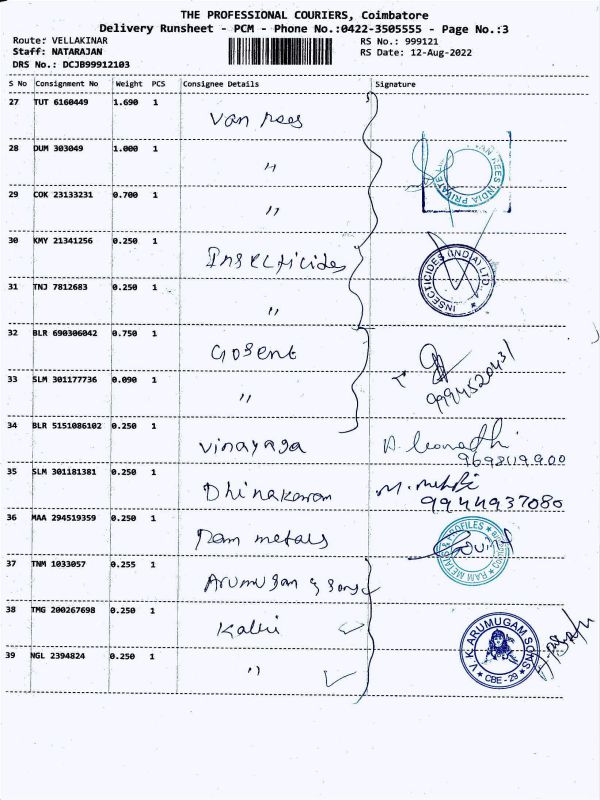 THE PROFESSIONAL COURIERS, Coimbatore
Delivery Runsheet - PCM - Phone No.:0422-3505555 - Page No.:3
Route: VELLAKINAR
RS No.: 999121
Staff: NATARAJAN
RS Date: 12-Aug-2022
DRS No.: DCJB99912103
S No Consignment No Weight PCS Consignee Details Signature
27 TUT 6160449 1.690 1 Van Rees
28 DUM 303049 1.000 1 "
VAN REES INDIA PRIVATE
29 COK 23133231 0.700 1 "
30 KMY 21341256 0.250 1 Insecticides
INSECTICIDES (INDIA) LTD.
31 TNJ 7812683 0.250 1 "
32 BLR 690306042 0.750 1 Gosent
33 SLM 301177736 0.090 1 "
9994520431
34 BLR 5151086102 0.250 1 Vinayaga
9698119900
35 SLM 301181381 0.250 1 Dhinakaran
9944937080
36 MAA 294519359 0.250 1 Ram metals
RAM METALS & PROFILES
37 TNM 1033057 0.255 1 Arumugan & Sons
38 TMG 200267698 0.250 1
V.K. ARUMUGAM SONS
CBE - 29
39 NGL 2394824 0.250 1 "